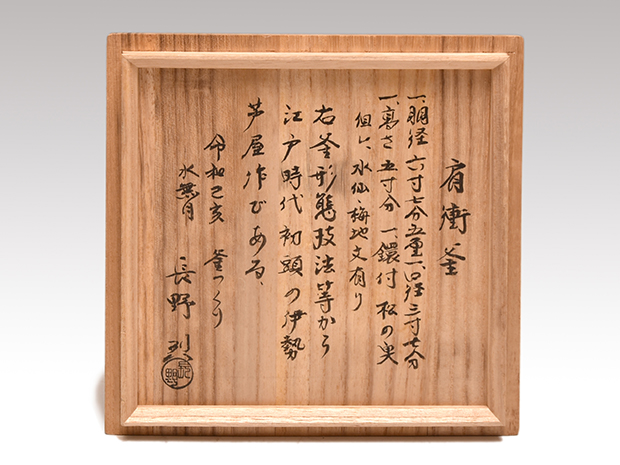 肩衝釜
一、胴径 六寸七分五厘 一、口径 三寸七分
一、高さ 五寸分 一、鐶付 松の実
但シ、水仙・梅地文有り
右釜形態技法等から
江戸時代初頭の伊勢
芦屋作である、
令和己亥 釜つくり
水無月 長野 烈
長野